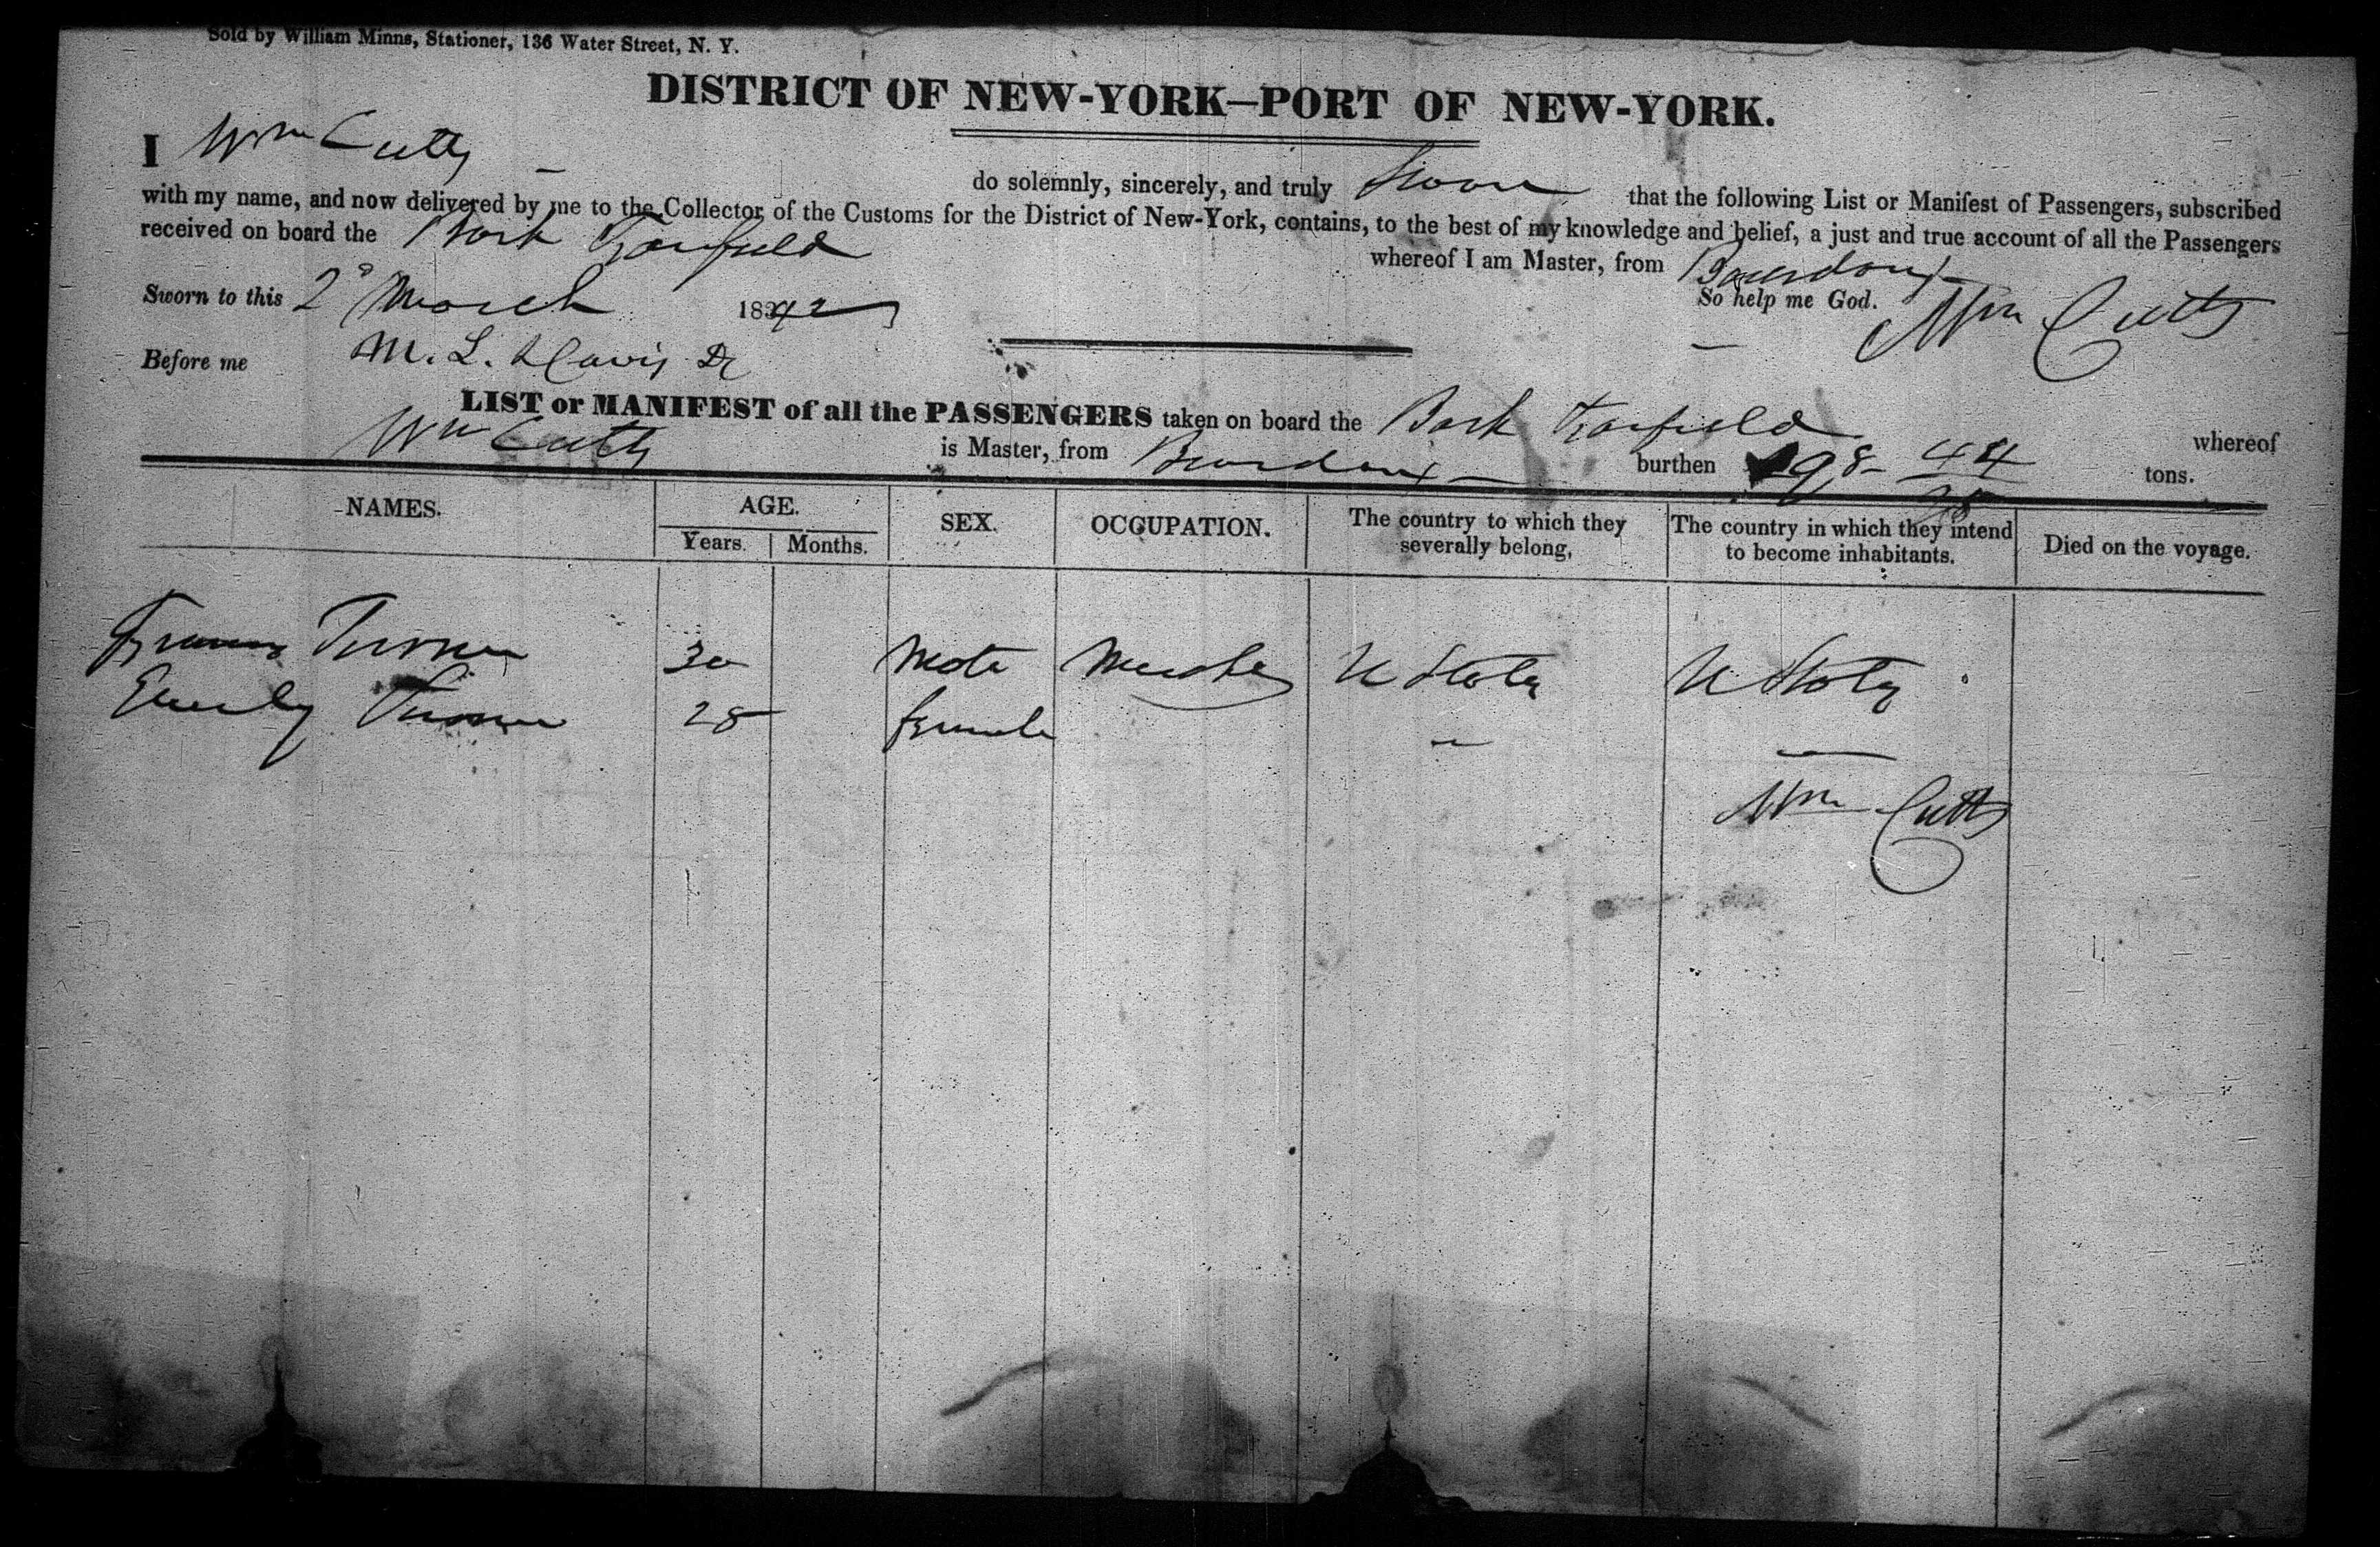 Sold by William Minns, Stationer, 136 Water Street, N. Y.
DISTRICT OF NEW-YORK—PORT OF NEW-YORK.
I Wm Cutts do solemnly, sincerely, and truly Swear that the following List or Manifest of Passengers, subscribed
with my name, and now delivered by me to the Collector of the Customs for the District of New-York, contains, to the best of my knowledge and belief, a just and true account of all the Passengers
received on board the Bark whereof I am Master, from Bourdoux
So help me God.
Sworn to this 2d March 1842 Wm Cutts
Before me M. L. Davis
LIST or MANIFEST of all the PASSENGERS taken on board the Bark whereof
Wm Cutts is Master, from Bourdoux burthen 98 44/95 tons.
NAMES. AGE. SEX. OCCUPATION. The country to which they severally belong, The country in which they intend to become inhabitants. Died on the voyage.
Years. Months.
Francis Turner 30 Male U States U States
Emily Turner 28 female
Wm Cutts